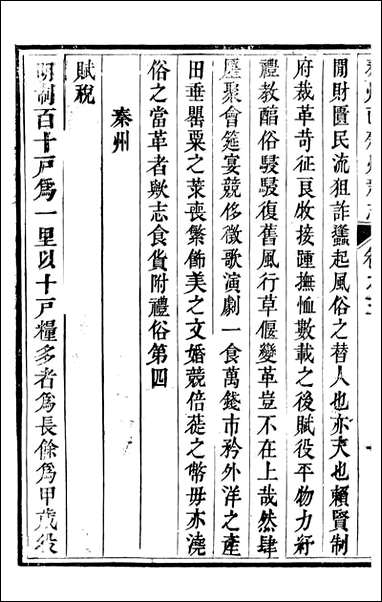 閒財匱民流狙詐蠭起風俗之替人也亦天也賴賢制
府裁革苛征良牧接踵撫恤數載之後賦役平物力紓
禮教醕俗駸駸復舊風行草偃變革豈不在上哉然肆
廛聚會筵宴競侈徵歌演劇一食萬錢市矜外洋之產
田垂罌粟之菜喪繁飾美之文婚競倍蓰之幣毋亦澆
俗之當革者歟志食貨附禮俗第四
秦州
賦稅
明制百十戸爲一里以十戸糧多者爲長餘爲甲歲役